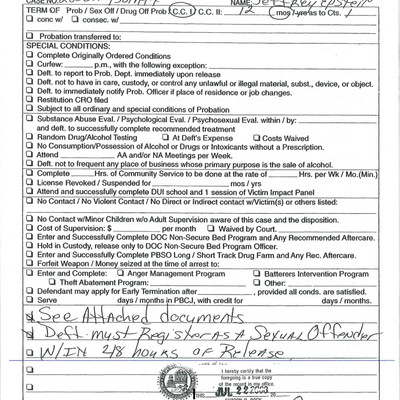 CASE NO. NAME: Jeffrey Epstein
TERM OF Prob / Sex Off / Drug Off Prob C.C. I C.C. II: 12 mos / yrs as to Cts. 1
☐ conc w/ ☐ consec. w/
☐ Probation transferred to:
SPECIAL CONDITIONS:
☐ Complete Originally Ordered Conditions
☐ Curfew: p.m., with the following exception:
☐ Deft. to report to Prob. Dept. immediately upon release
☐ Deft. not to have in care, custody, or control any unlawful or illegal material, subst., device, or object.
☐ Deft. to immediately notify Prob. Officer if place of residence or job changes.
☐ Restitution CRO filed
☐ Subject to all ordinary and special conditions of Probation
☐ Substance Abuse Eval. / Psychological Eval. / Psychosexual Eval. within / by:
and deft. to successfully complete recommended treatment
☐ Random Drug/Alcohol Testing ☐ At Deft's Expense ☐ Costs Waived
☐ No Consumption/Possession of Alcohol or Drugs or Intoxicants without a Prescription.
☐ Attend AA and/or NA Meetings per Week.
☐ Deft. not to frequent any place of business whose primary purpose is the sale of alcohol.
☐ Complete Hrs. of Community Service to be done at the rate of Hrs. per Wk / Mo.(Min.)
☐ License Revoked / Suspended for mos / yrs
☐ Attend and successfully complete DUI school and 1 session of Victim Impact Panel
☐ No Contact / No Violent Contact / No Direct or Indirect contact w/Victim(s) or others listed:
☐ No Contact w/Minor Children w/o Adult Supervision aware of this case and the disposition.
☐ Cost of Supervision: $ per month ☐ Waived by Court.
☐ Enter and Successfully Complete DOC Non-Secure Bed Program and Any Recommended Aftercare.
☐ Hold in Custody, release only to DOC Non-Secure Bed Program Officer.
☐ Enter and Successfully Complete PBSO Long / Short Track Drug Farm and Any Rec. Aftercare.
☐ Forfeit Weapon / Money seized at time of arrest to:
☐ Enter and Complete: ☐ Anger Management Program ☐ Batterers Intervention Program
☐ Theft Abatement Program: ☐ Other:
☐ Defendant may apply for Early Termination after , provided all conds. are satisfied.
☐ Serve days / months in PBCJ, with credit for days / months.
See Attached documents
Deft. must Register as a Sexual Offender
W/IN 48 hours of Release
I hereby certify that the
foregoing is a true copy
of the record in my office.
JUL 22